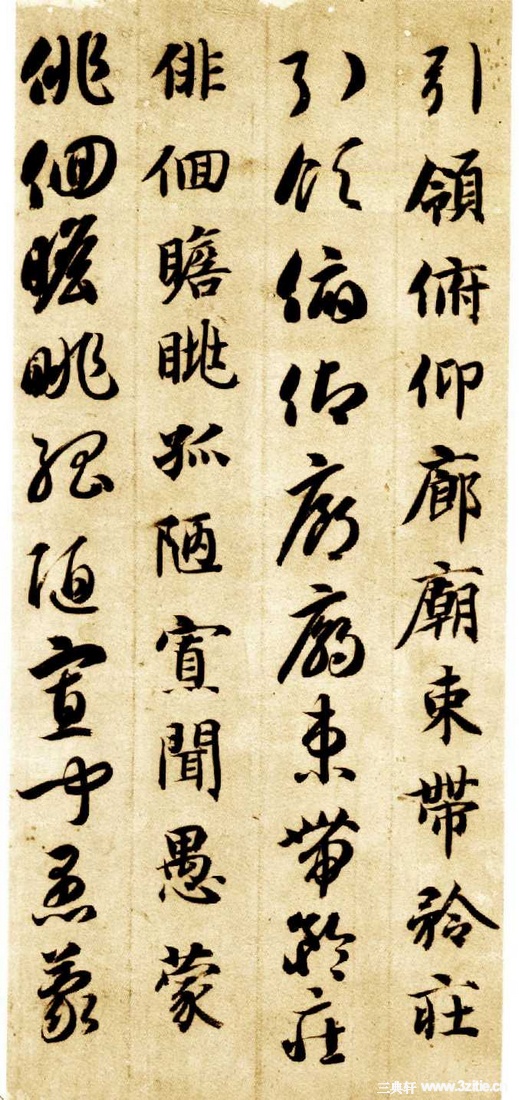 引領俯仰廊廟束帶矜莊
引領俯仰廊廟束帶矜莊
俳佪瞻眺孤陋寡聞愚蒙
俳佪瞻眺孤陋寡聞愚蒙
三典轩 www.3zitie.cn